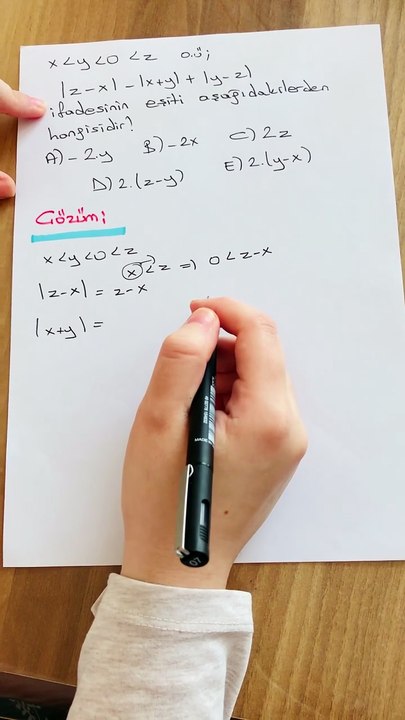 x<y<0<z o.ü;
|z-x| - |x+y| + |y-z|
ifadesinin eşiti aşağıdakilerden
hangisidir?
A) -2.y B) -2x C) 2z
D) 2.(z-y) E) 2.(y-x)
Çözüm;
x<y<0<z
x<z => 0<z-x
|z-x| = z-x
|x+y| =